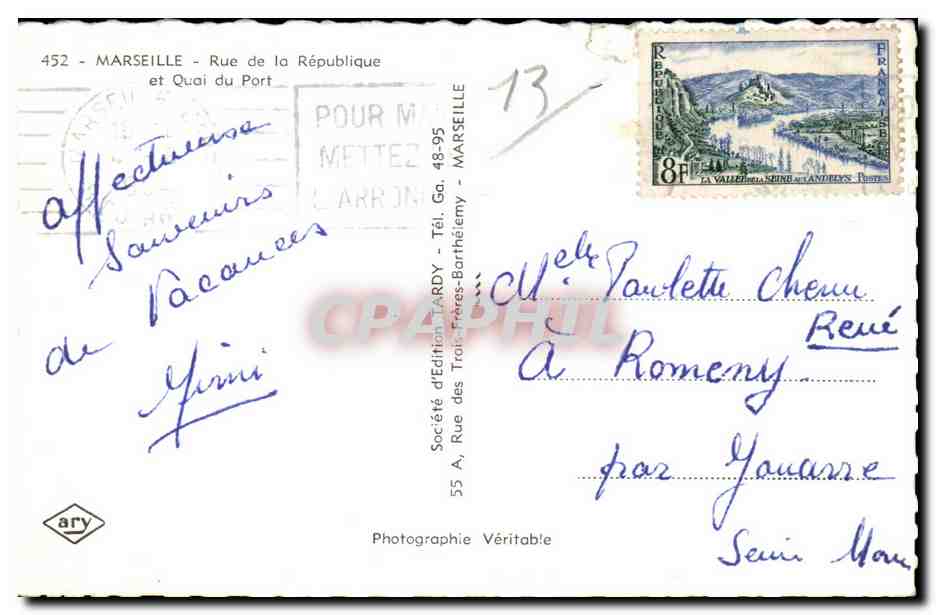 452 - MARSEILLE - Rue de la République
et Quai du Port
MARSEIL
POUR MA
METTEZ
L'ARRON
13
RÉPUBLIQUE FRANÇAISE
8F
LA VALLÉE DE LA SEINE AUX ANDELYS POSTES
affectueuse
Souvenirs
de Vacances
Mimi
Société d'Edition TARDY - Tél. Ga. 48-95
55 A, Rue des Trois-Frères-Barthélemy - MARSEILLE
CPAPHIL
Melle Paulette Chenu
René
à Romeny
par Jouarre
Seine Marne
ary
Photographie Véritable